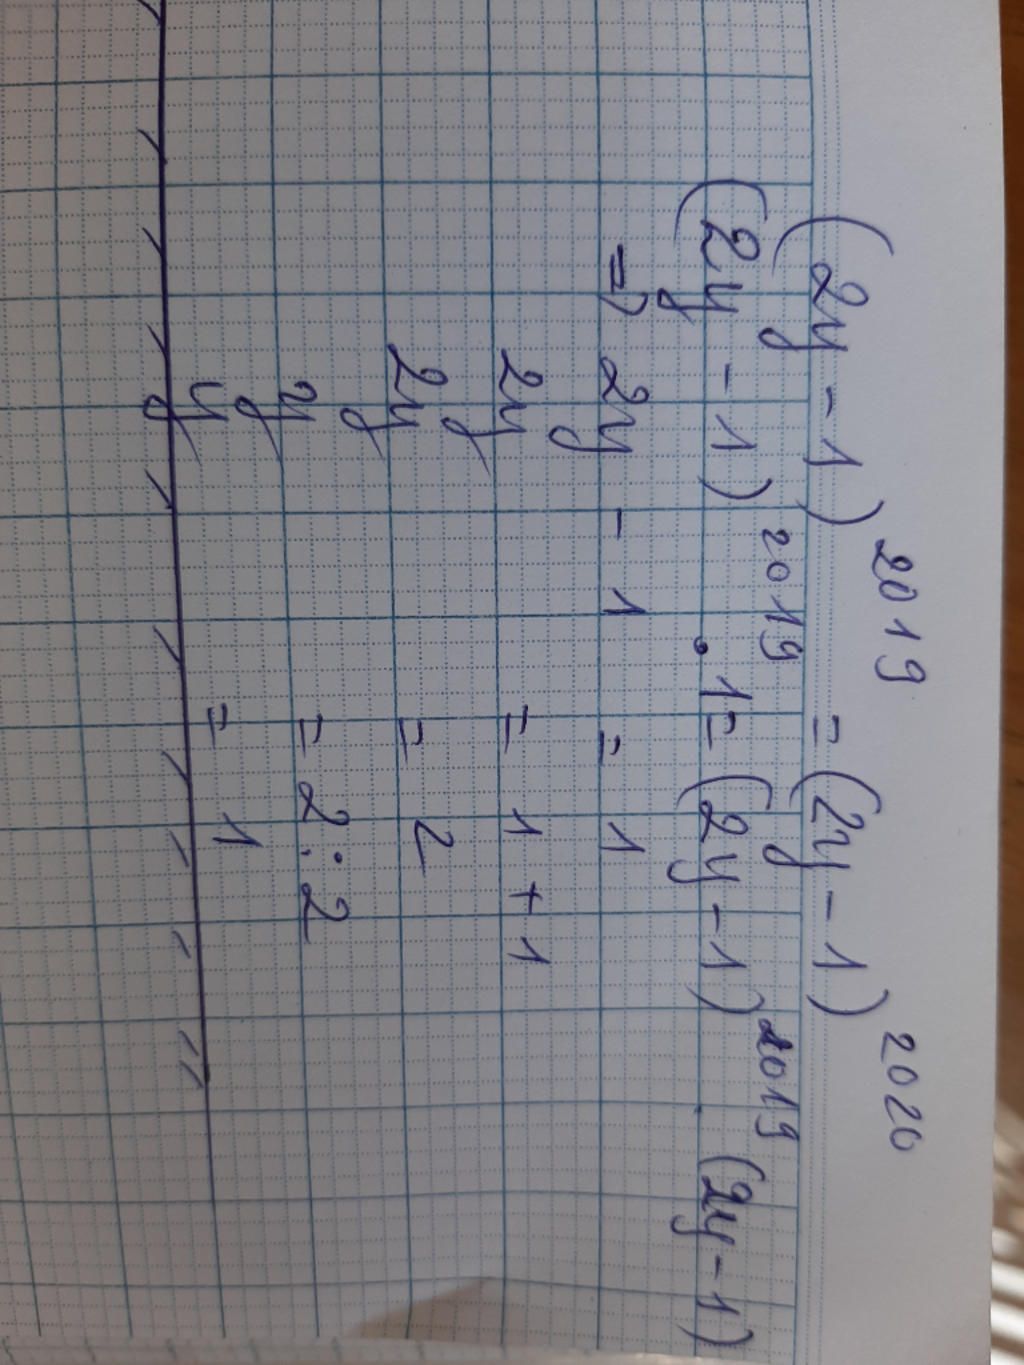 (2y - 1)²⁰¹⁹ = (2y - 1)²⁰²⁰
(2y - 1)²⁰¹⁹ . 1 = (2y - 1)²⁰¹⁹ . (2y - 1)
=> 2y - 1 = 1
2y = 1 + 1
2y = 2
y = 2 : 2
y = 1